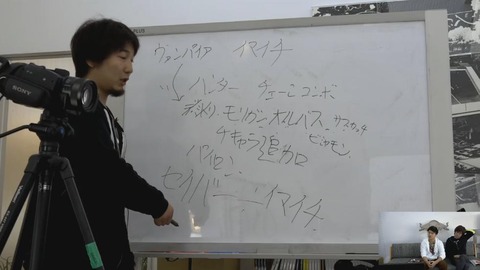 PLUS
SONY
ヴァンパイア イマイチ
ハンター チェーンコンボ
モリガン、オルバス、サスカッチ
ビシャモン
チキャラ追加
パイロン
セイバー イマイチ